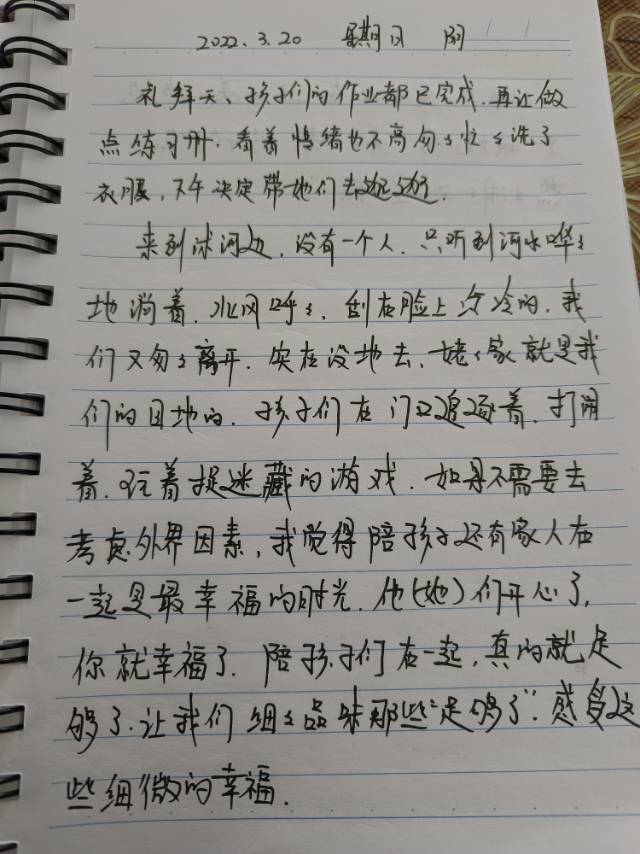 2022.3.20 星期日 阴
礼拜天、孩子们的作业都已完成.再让做
点练习册.看着情绪也不高匆々忙々洗了
衣服,下午决定带她们去边.
来到沭河边,没有一个人.只听到河水哗々
地淌着.北风呼々,刮在脸上冷冷的.我
们又匆々离开.实在没地去,姥々家就是我
们的目地的.孩子们在门口追逐着.打闹
着.玩着捉迷藏的游戏.如果不需要去
考虑外界因素,我觉得陪孩子还有家人在
一起是最幸福的时光.他(她)们开心了,
你就幸福了.陪孩子们在一起,真的就足
够了.让我们细々品味那些“足够了”.感受这
些细微的幸福.